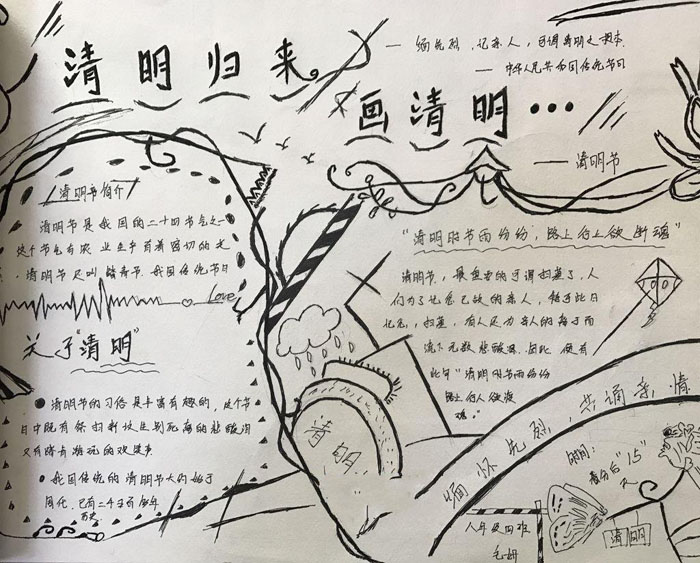 清明归来
— 缅先烈、记亲人,可谓清明之根本
— 中华人民共和国传统节日
画清明…
— 清明节
清明节简介
清明节是我国的二十四节气之一
这个节气与农业生产有着密切的关
,清明节又叫踏青节,我国传统节日
Love
关于"清明"
清明节的习俗是丰富有趣的,这个节
日中既有祭扫新坟生别死离的悲酸泪
又有踏青游玩的欢笑声
我国传统的清明节大约始于
周代,已有二千五百多年
历史
"清明时节雨纷纷,路上行上欲断魂"
清明节,最重要的可谓扫墓了,人
们为了纪念已故的亲人,都于此日
纪念,扫墓,有人还为亲人的离开而
流下无数悲酸泪。因此,便有
此句"清明时节雨纷纷
路上行人欲断
魂。"
清明
缅怀先烈,共诵亲情
时间:
春分后"15"
天
清明
八年级四班